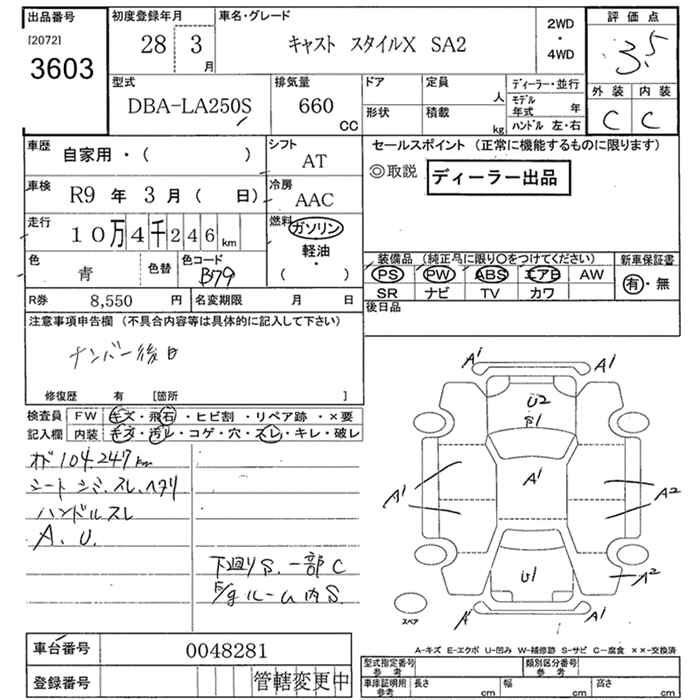 出品番号
[2072]
3603
初度登録年月
28 3 月
車名・グレード
キャスト スタイルX SA2
2WD
・
4WD
評価点
3.5
外装 内装
C C
型式
DBA-LA250S
排気量
660 CC
ドア
定員 人
形状
積載 kg
ディーラー・並行
モデル年式 年
ハンドル 左・右
車歴
自家用・( )
シフト
AT
車検
R9 年 3 月 ( 日)
冷房
AAC
走行
10万4千246 km
燃料
ガソリン
軽油・
( )
色
青
色替
色コード
B79
R券 8,550 円
名変期限 月 日
セールスポイント (正常に機能するものに限ります)
◎取説 ディーラー出品
装備品 (純正品に限り〇をつけてください)
PS PW ABS エアB AW
SR ナビ TV カワ
新車保証書
有・無
後日品
注意事項申告欄 (不具合内容等は具体的に記入して下さい)
ナンバー後日
修復歴 有 [箇所 ]
検査員 FW キズ・飛石・ヒビ割・リペア跡・×要
記入欄 内装 キズ・汚レ・コゲ・穴・スレ・キレ・破レ
104.247km
シート シミ、スレ、ヘタリ
ハンドルスレ
A. U.
下廻りS. 一部C
ルーム内S.
A1 A1
U2
B1
A1
A1 A2
U1
A2
A1
スペア
A-キズ E-エクボ U-凹み W-補修跡 S-サビ C-腐食 ××-交換済
車台番号 0048281
登録番号 管轄変更中
型式指定番号
参考
類別区分番号
参考
車庫証明用
参考
長さ cm 幅 cm 高さ cm